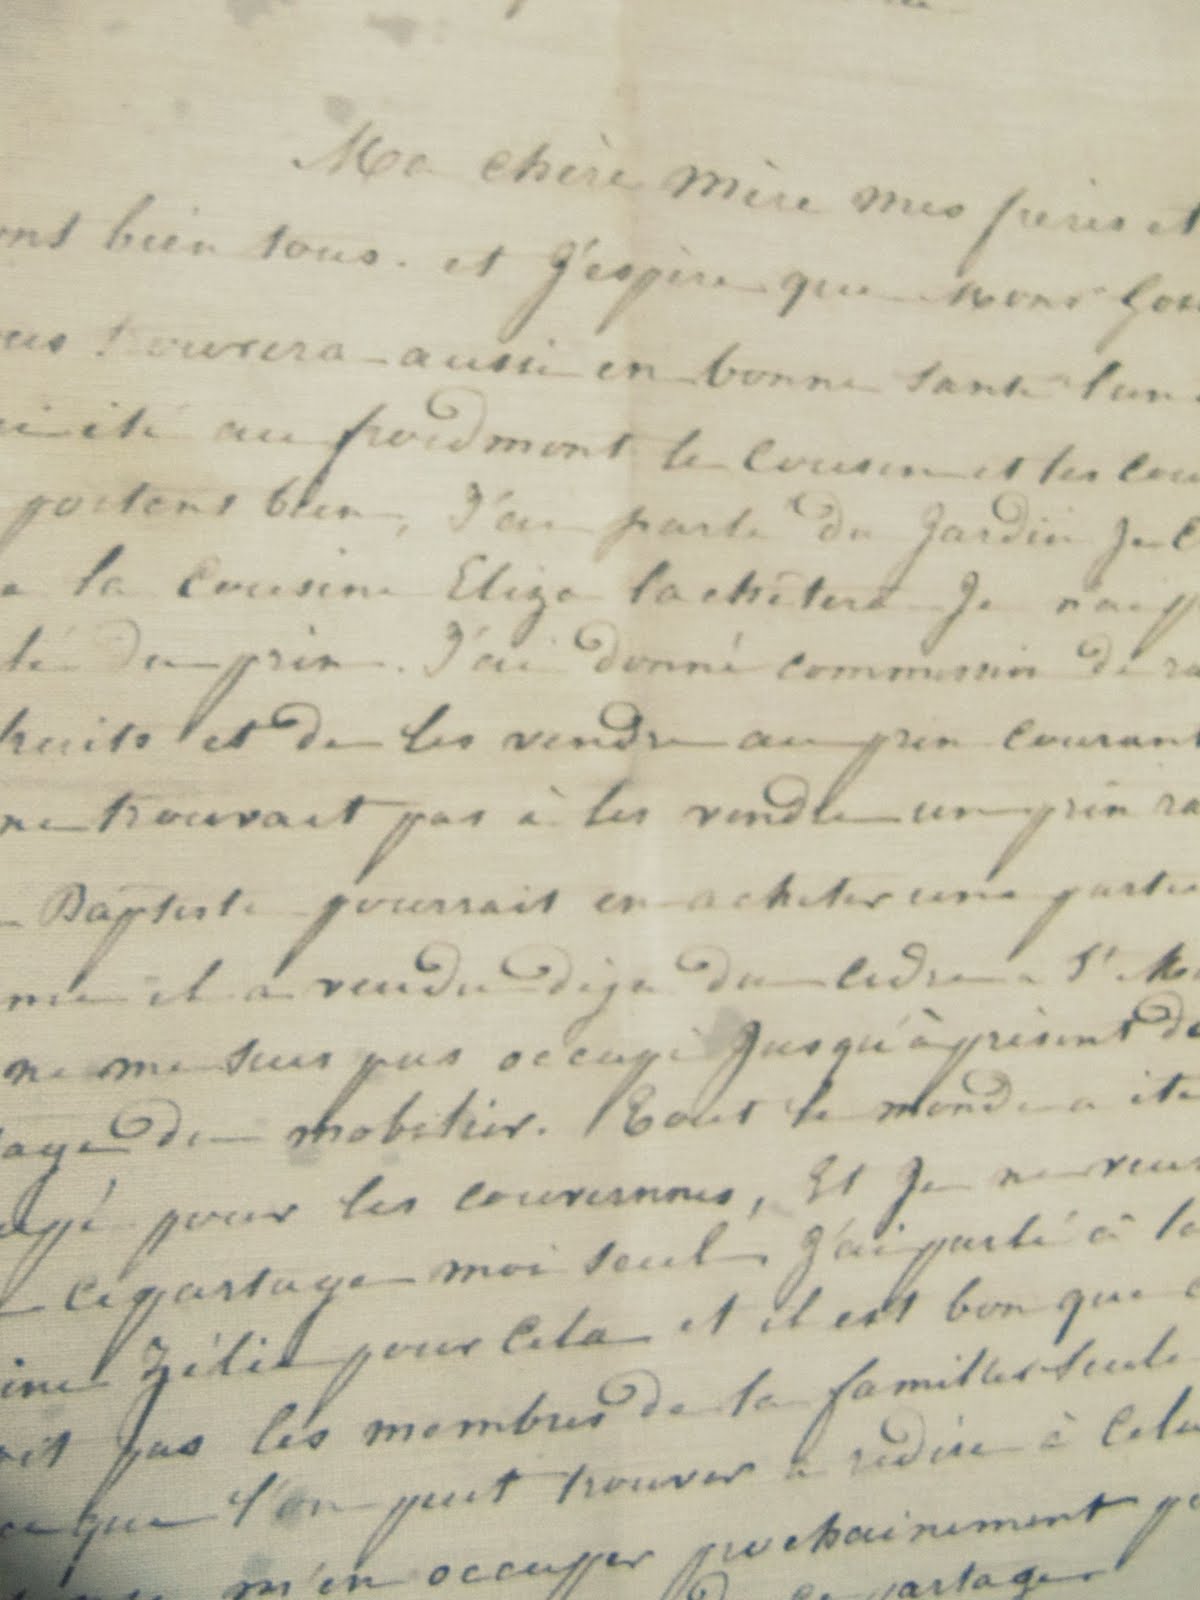 Ma chère mère mes frères et
ont bien tous. et J'espère que
ous trouvera aussi en bonne santé l'un
été au froidmont le Cousin et les Cou
portent bien, J'ai parlé du Jardin Je C
la Cousine Eliza lachêtera Je n'ai p
lé du prix. J'ai donné commission de ra
fruits et de les vendre au prix courant
ne trouvait pas à les vendre un prix ra
Baptiste pourrait en acheter une partie
me il a vendu deja du Cidre a St M
ne me suis pas occupé Jusqu'à présent de
tage du mobilier. Tout le monde a été
agé pour les couvraines, Et Je ne veux
ce partage moi seul J'ai parlé à la
ine Zélie pour Cela et il est bon que
oit pas les membres de la famille seule
ce que l'on peut trouver a redire à Cela
m'en occupper prochainement po
ce partage